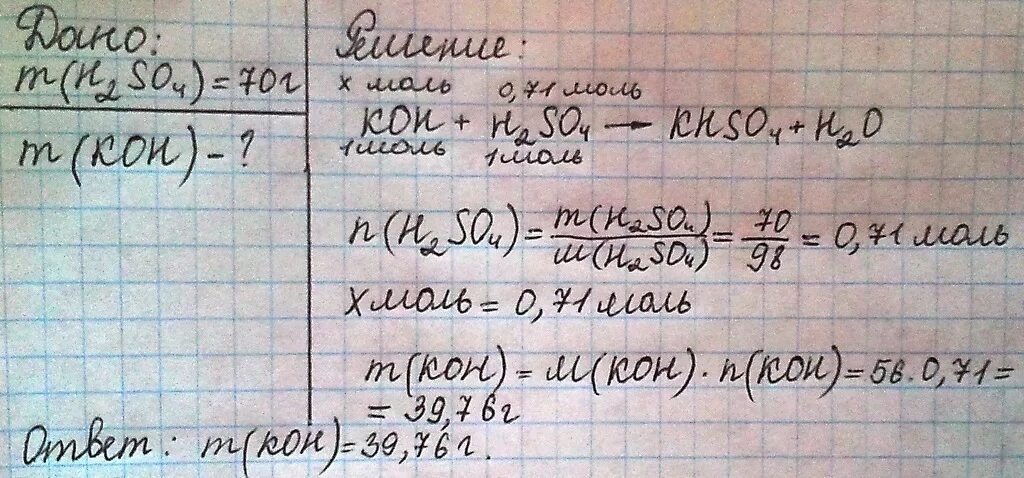 Дано:
m(H₂SO₄)=70г
m(KOH)-?
Решение:
x моль 0,71 моль
KOH + H₂SO₄ → KHSO₄ + H₂O
1моль 1моль
n(H₂SO₄) = m(H₂SO₄)/M(H₂SO₄) = 70/98 = 0,71 моль
x моль = 0,71 моль
m(KOH) = M(KOH) · n(KOH) = 56 · 0,71 =
= 39,76 г
Ответ: m(KOH)=39,76 г.